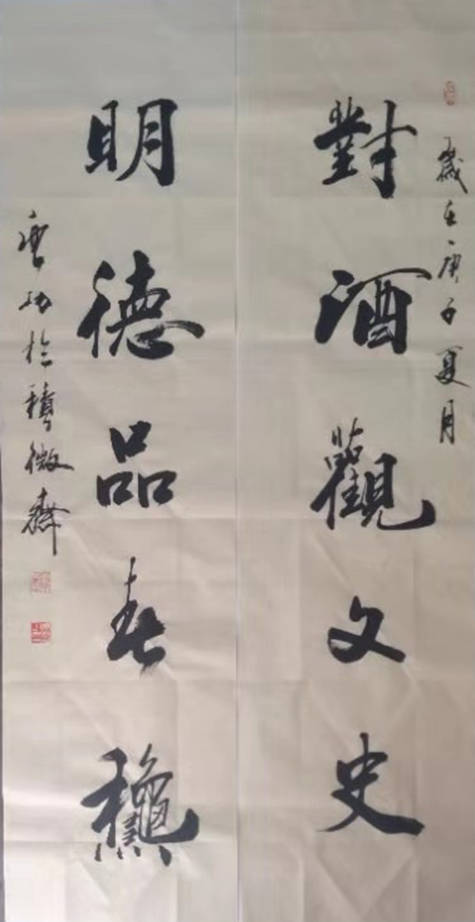 歲在庚子夏月
對酒觀文史
明德品春龝
於積微齋